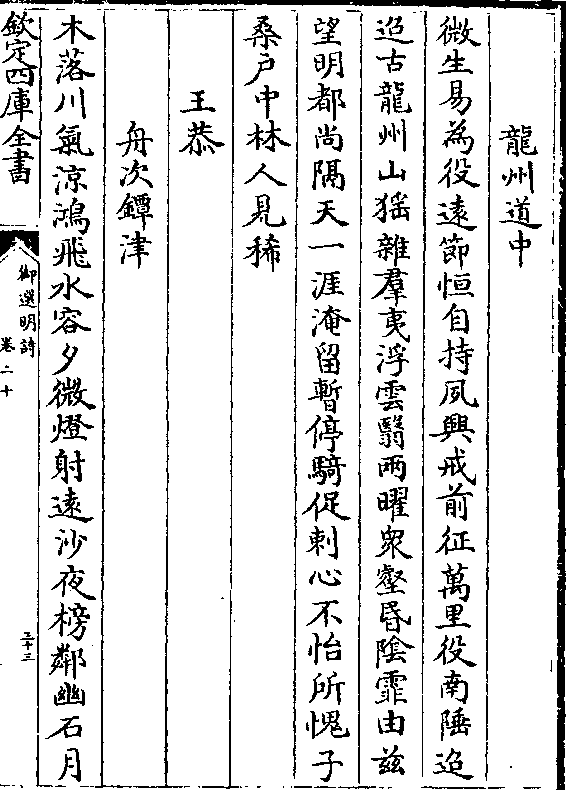 龍州道中
微生易為役遠節恒自持夙興戒前征萬里役南陲迢
迢古龍州山猺雜羣夷浮雲翳兩曜衆壑昏陰霏由兹
望明都尚隔天一涯淹留暫停騎促剌心不怡所愧子
桑戸中林人見稀
王恭
舟次鐔津
木落川氣涼鴻飛水容夕微燈射遠沙夜榜鄰幽石月
欽定四庫全書
御選明詩
卷二十
三十三